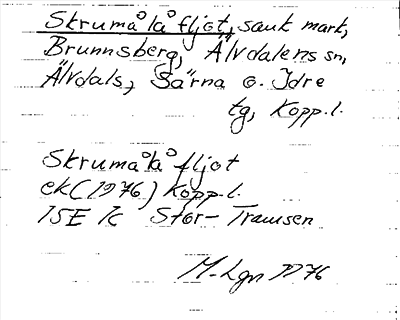 Skrumålåfljot, sank mark,
Brunnsberg, Älvdalens sn,
Älvdals, Särna o. Idre
tg, Kopp. l.
Skrumålåfljot
ek (1976) Kopp. l.
15E 1c Stor-Tramsen
M. Lgn 1976